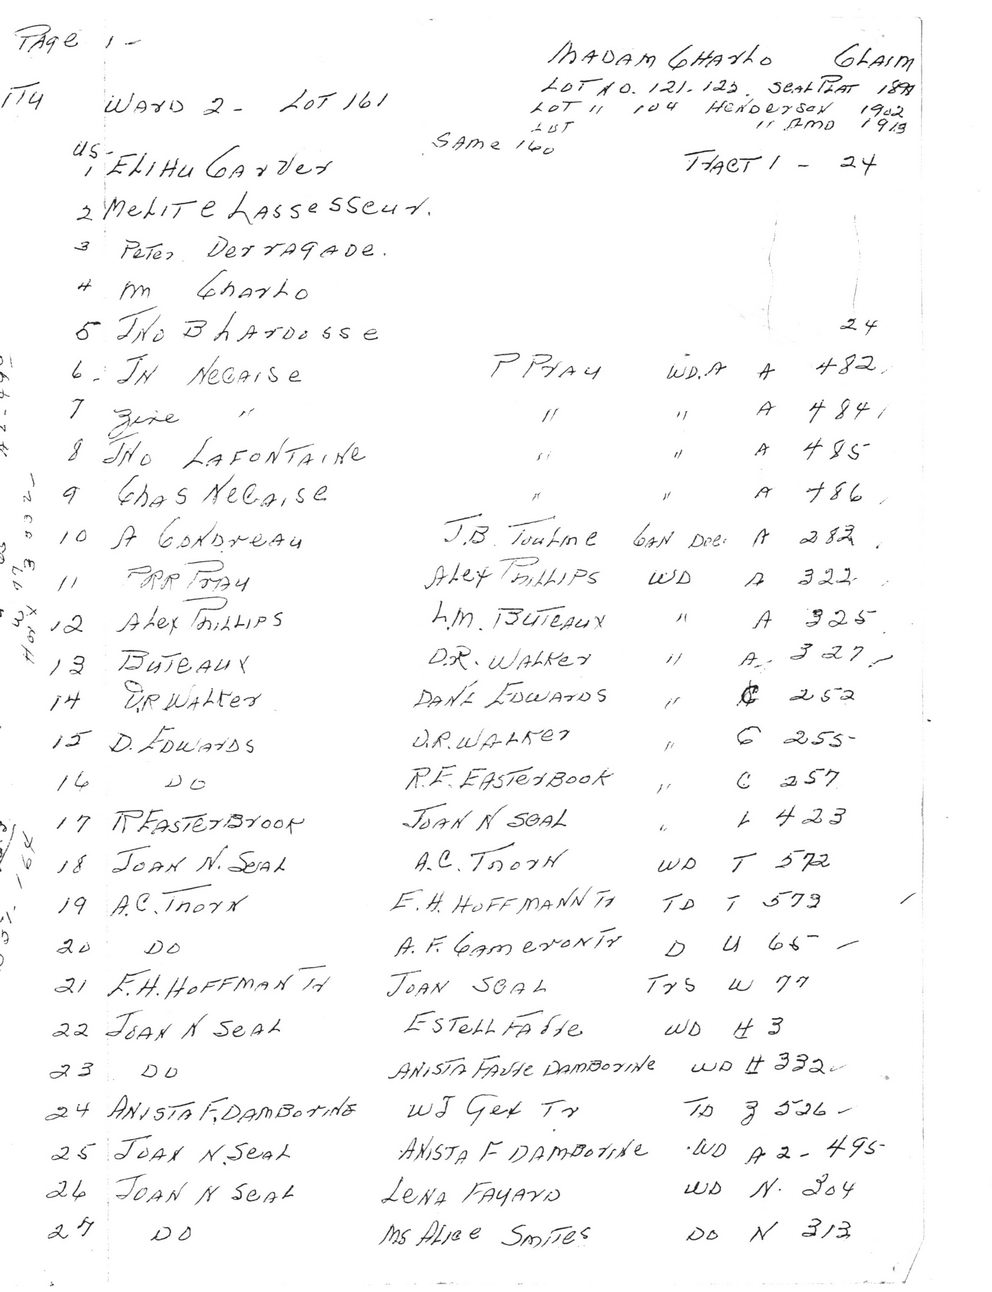 Page 1 -
MADAM CHARLO CLAIM
LOT NO. 121-123. SEAL PLAT
174 WARD 2 - LOT 161
LOT " 104 HENDERSON 1902
LOT " AMD 1913
SAME 160
TRACT 1 - 24
US-
1 ELIHU CARVER
2 MELITE LASSESSEUR.
3 Peter DERRAGADE.
4 MM CHARLO
5 JNO B LARDOSSE 24
6. JN NECAISE P PRAY WD.A A 482
7 Zire " " " A 484
8 JNO LAFONTAINE " " A 485
9 CHAS NECAISE " " A 486
10 A GONDREAU J.B. Toulme CAN DEE. A 282
11 PRR PRAY ALEX PHILLIPS WD A 322
12 ALEX PHILLIPS L.M. BUTEAUX " A 325
13 BUTEAUX D.R. WALKER " A. 327
14 D.R WALKER DAN'L EDWARDS " C 252
15 D. EDWARDS D.R. WALKER " C 255
16 DO R.F. EASTERBOOK " C 257
17 R EASTERBROOK JOAN N SEAL " L 423
18 JOAN N. SEAL A.C. THORN WD T 572
19 A.C. THORN E.H. HOFFMANN Tr TD T 573
20 DO A.F. CAMERON Tr D U 65 -
21 E.H. HOFFMAN Tr JOAN SEAL TrS W 77
22 JOAN N SEAL ESTELL FAVRE WD H 3
23 DO ANISTA FAVRE DAMBORINE WD H 332
24 ANISTA F. DAMBORINE WJ Gex Tr TD Z 526 -
25 JOAN N. SEAL ANISTA F DAMBORINE WD A2 - 495
26 JOAN N SEAL LENA FAYARD WD N. 304
27 DO MS ALICE SMITES DO N 313